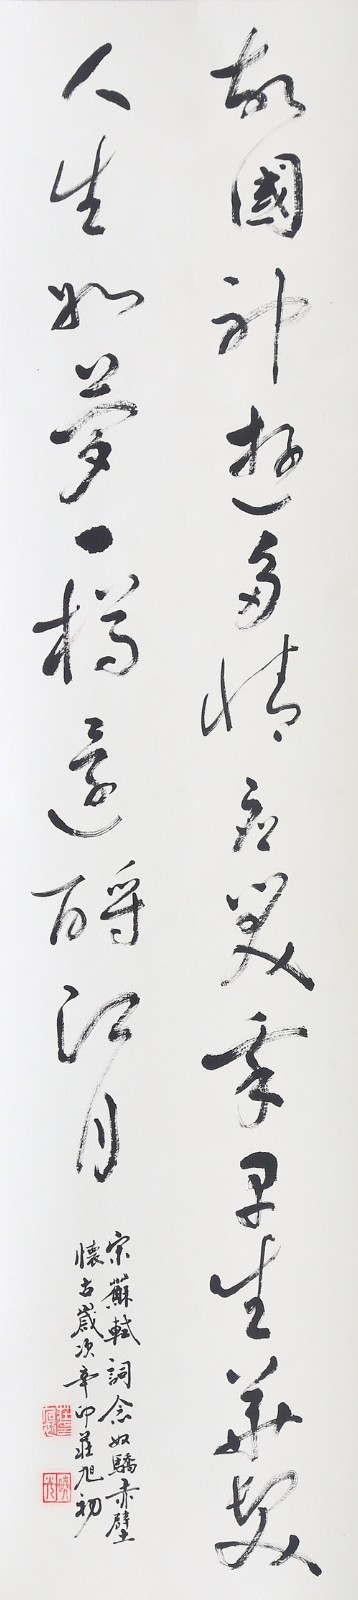 故國神遊多情應笑我早生華髮
人生如夢一樽還酹江月
宋蘇軾詞念奴驕赤壁
懷古歲次辛卯莊旭初